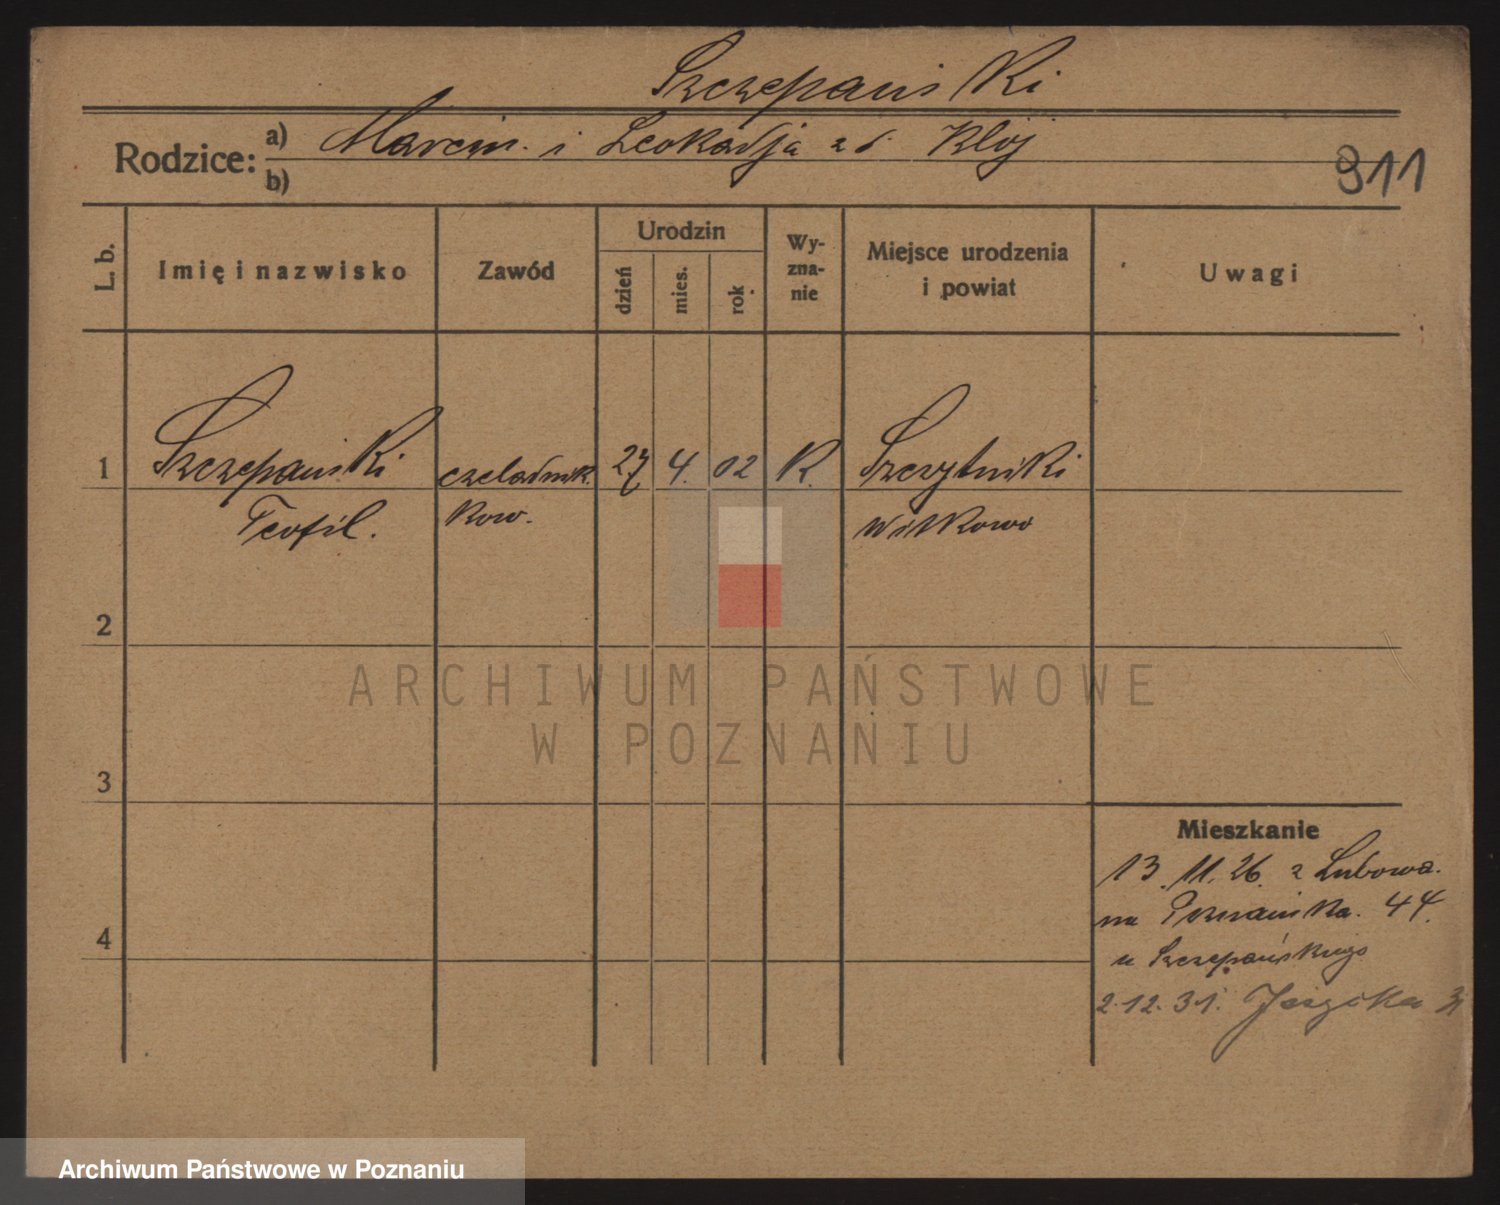 Szczepański
Rodzice: a) Marcin i Leokadja z d. Kloj
b)
911
L. b. Imię i nazwisko Zawód Urodzin dzień mies. rok Wy-zna-nie Miejsce urodzenia i powiat Uwagi
1 Szczepański czeladnik 27 4. 02 K. Szczytniki
Teofil. kow. Witkowo
2
ARCHIWUM PAŃSTWOWE
W POZNANIU
3
Mieszkanie
13.11.26. z Łubowa.
na Poznańska. 44.
4
u Szczepańskiego
2.12.31.
Archiwum Państwowe w Poznaniu